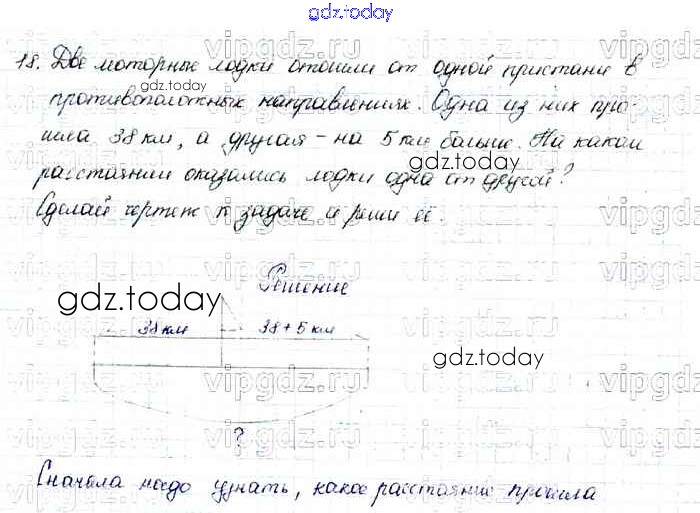 gdz.today
18. Две моторные лодки отошли от одной пристани в
противоположных направлениях. Одна из них про-
шла 38 км, а другая - на 5 км больше. На каком
расстоянии оказались лодки одна от другой?
Сделай чертеж к задаче и реши её.
Решение
38 км 38 + 5 км
?
Сначала надо узнать, какое расстояние прошла
gdz.today
gdz.today
gdz.today
gdz.today
vipgdz.ru